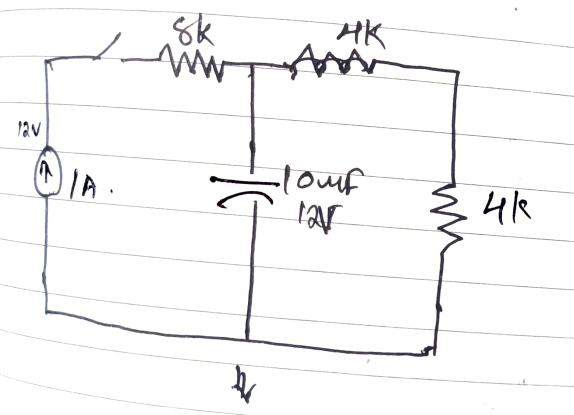 8k
4k
12V
1A.
10uF
12V
4k